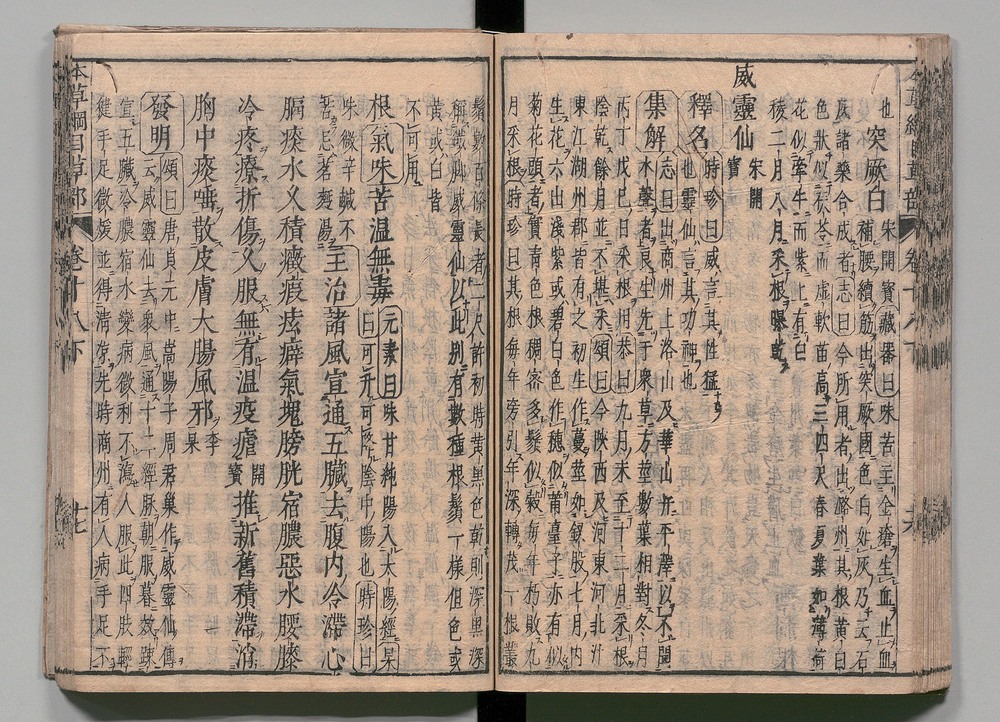 本草綱目草部 卷十八下
也
突厥白 宋開寶 藏器曰味苦主金瘡生血止血
補腰續筋出突厥國色白如灰乃云石
灰諸藥合成者志曰今所用者出潞州其根黃白
色狀似茯苓而虛軟苗高三四尺春夏葉如薄荷
花似牽牛而紫上有白
稜二月八月采根曝乾
威靈仙 宋開寶
釋名 時珍曰威言其性猛
也靈仙言其功神也
集解 志曰出商州上洛山及華山并平澤以不聞
水聲者良生先于衆草方莖數葉相對冬月
丙丁戊巳日采根用恭曰九月末至十二月采根
陰乾餘月並不堪采頌曰今陝西及河東河北汴
東江湖州郡皆有之初生作蔓莖如釵股七月內
生花六出淺紫或碧白色作穗似莆臺子亦有似
菊花頭者實青色根稠密多鬚似穀每年朽敗九
月采根時珍曰其根每年旁引年深轉茂一根叢
鬚數百條長者二尺許初時黃黑色乾則深黑
稱鐵脚威靈仙以此別有數種根鬚一樣但色或
黃或白皆
不可用
根 氣味 苦温無毒 元素曰味甘純陽入太陽經杲
曰可升可降陰中陽也時珍曰
味微辛鹹不
苦忌茗麪湯 主治 諸風宣通五臟去腹內冷滯心
膈痰水久積癥瘕痃癖氣塊膀胱宿膿惡水腰膝
冷疼療折傷久服無有温疫瘧 開寶 推新舊積滯消
胸中痰唾散皮膚大腸風邪 李杲
發明 頌曰唐貞元中嵩陽子周君巢作威靈仙傳
云威靈仙去衆風通十二經脉朝服暮效疎
宣五臟冷膿宿水變病微利不瀉人服此四肢輕
健手足微煖並得清凉先時商州有人病手足不